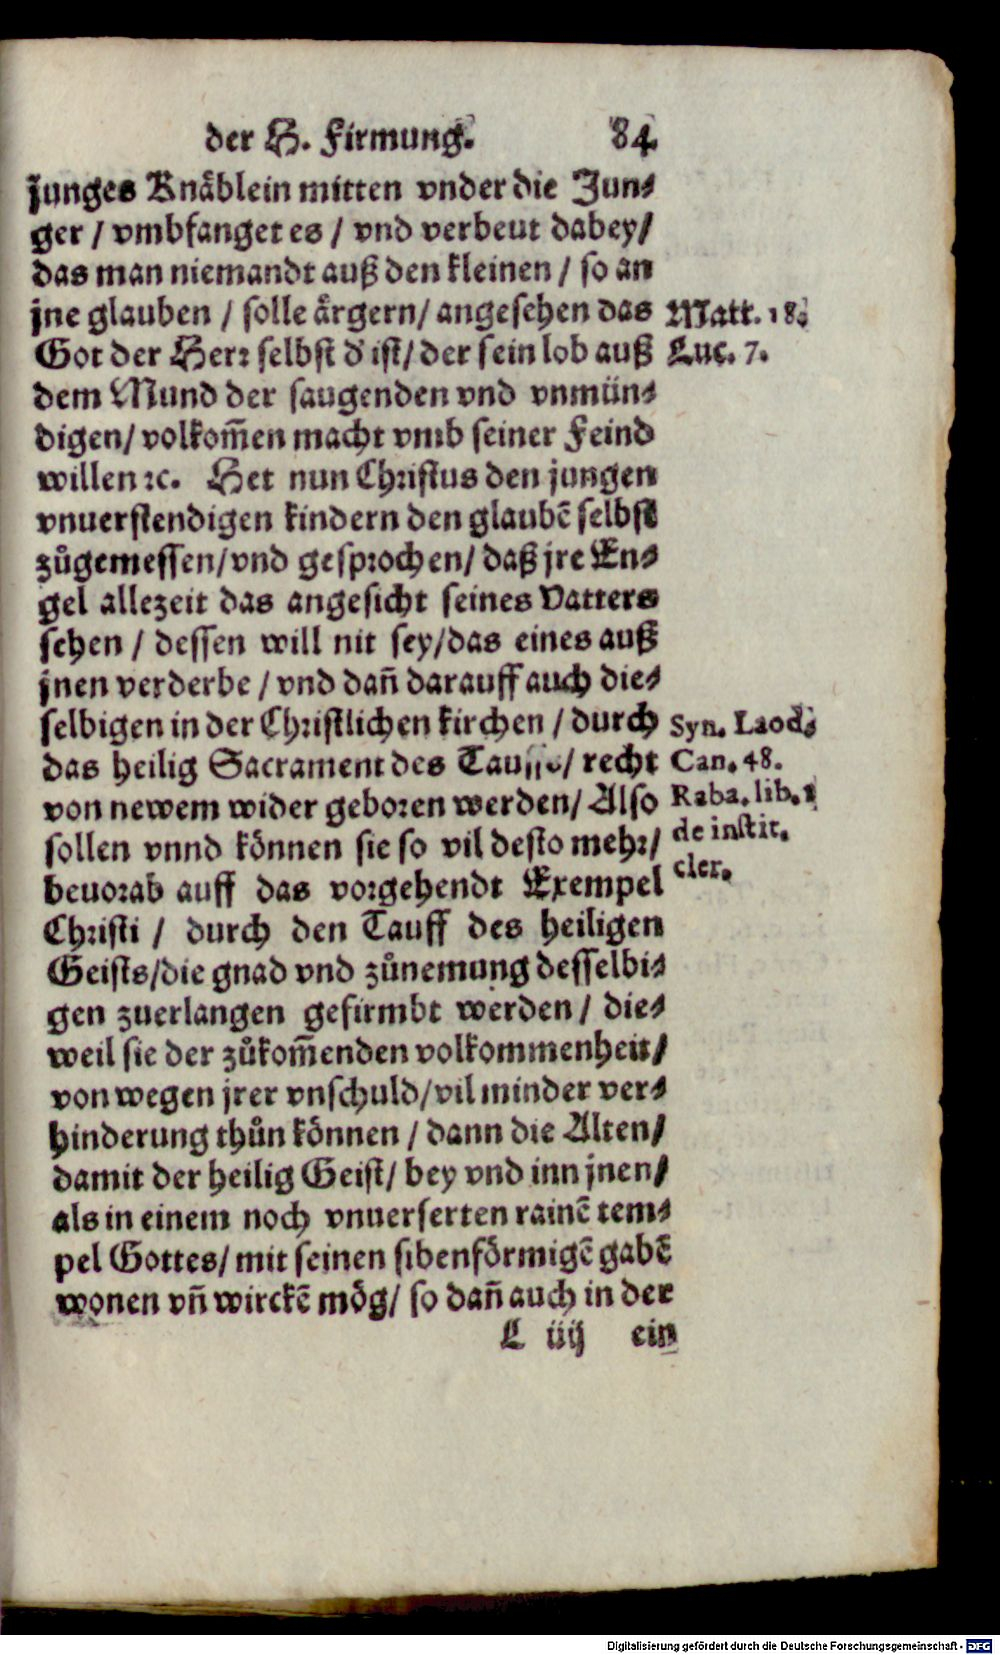 der H. Firmung. 84.
junges Knäblein mitten vnder die Jun⸗
ger / vmbfanget es / vnd verbeut dabey/
das man niemandt auß den kleinen / so an
jne glauben / solle ärgern/ angesehen das
Matt. 18.
Got der Herr selbst d' ist/ der sein lob auß
Luc. 7.
dem Mund der saugenden vnd vnmün⸗
digen/ volkom̃en macht vmb seiner Feind
willen ꝛc. Het nun Christus den jungen
vnuerstendigen kindern den glaubẽ selbst
zůgemessen/ vnd gesprochen/ daß jre En⸗
gel allezeit das angesicht seines Vatters
sehen / dessen will nit sey/ das eines auß
jnen verderbe / vnd dañ darauff auch die⸗
selbigen in der Christlichen kirchen / durch
Syn. Laod.
das heilig Sacrament des Tauffs/ recht
Can. 48.
von newem wider geboren werden/ Also
Raba. lib. 1
sollen vnnd können sie so vil desto mehr/
de instit.
beuorab auff das vorgehendt Exempel
cler.
Christi / durch den Tauff des heiligen
Geists/ die gnad vnd zůnemung desselbi⸗
gen zuerlangen gefirmbt werden / die⸗
weil sie der zůkom̃enden volkommenheit/
von wegen jrer vnschuld/ vil minder ver⸗
hinderung thůn können / dann die Alten/
damit der heilig Geist/ bey vnd inn jnen/
als in einem noch vnuerserten rainẽ tem⸗
pel Gottes/ mit seinen sibenförmigẽ gabẽ
wonen vñ wirckẽ mög/ so dañ auch in der
L iiij ein
Digitalisierung gefördert durch die Deutsche Forschungsgemeinschaft - DFG